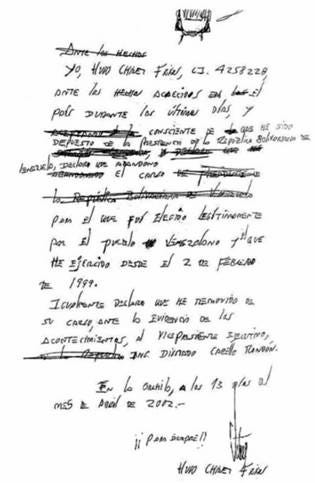 Ante los hechos
Yo, Hugo Chavez Frías, C.I. 4258228,
ante los hechos acaecidos en el
país durante los últimos días y
consciente de que he sido
depuesto de la Presidencia de la República Bolivariana de
Venezuela, declaro que abandono
el cargo de Presidente de
la República Bolivariana de Venezuela
para el que fui electo legítimamente
por el pueblo Venezolano y que
he ejercido desde el 2 de febrero
de 1999.
Igualmente declaro que he removido de
su cargo, ante la evidencia de los
acontecimientos, al Vicepresidente Ejecutivo,
Ing. Diosdado Cabello Rondón.
En La Orchila, a los 13 días del
mes de Abril de 2002.-
¡¡Para siempre!!
Hugo Chavez Frías